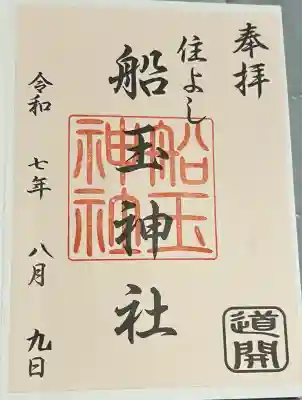 奉拝
住よし
船玉神社
船玉
神社
道開
令和 七年 八月 九日